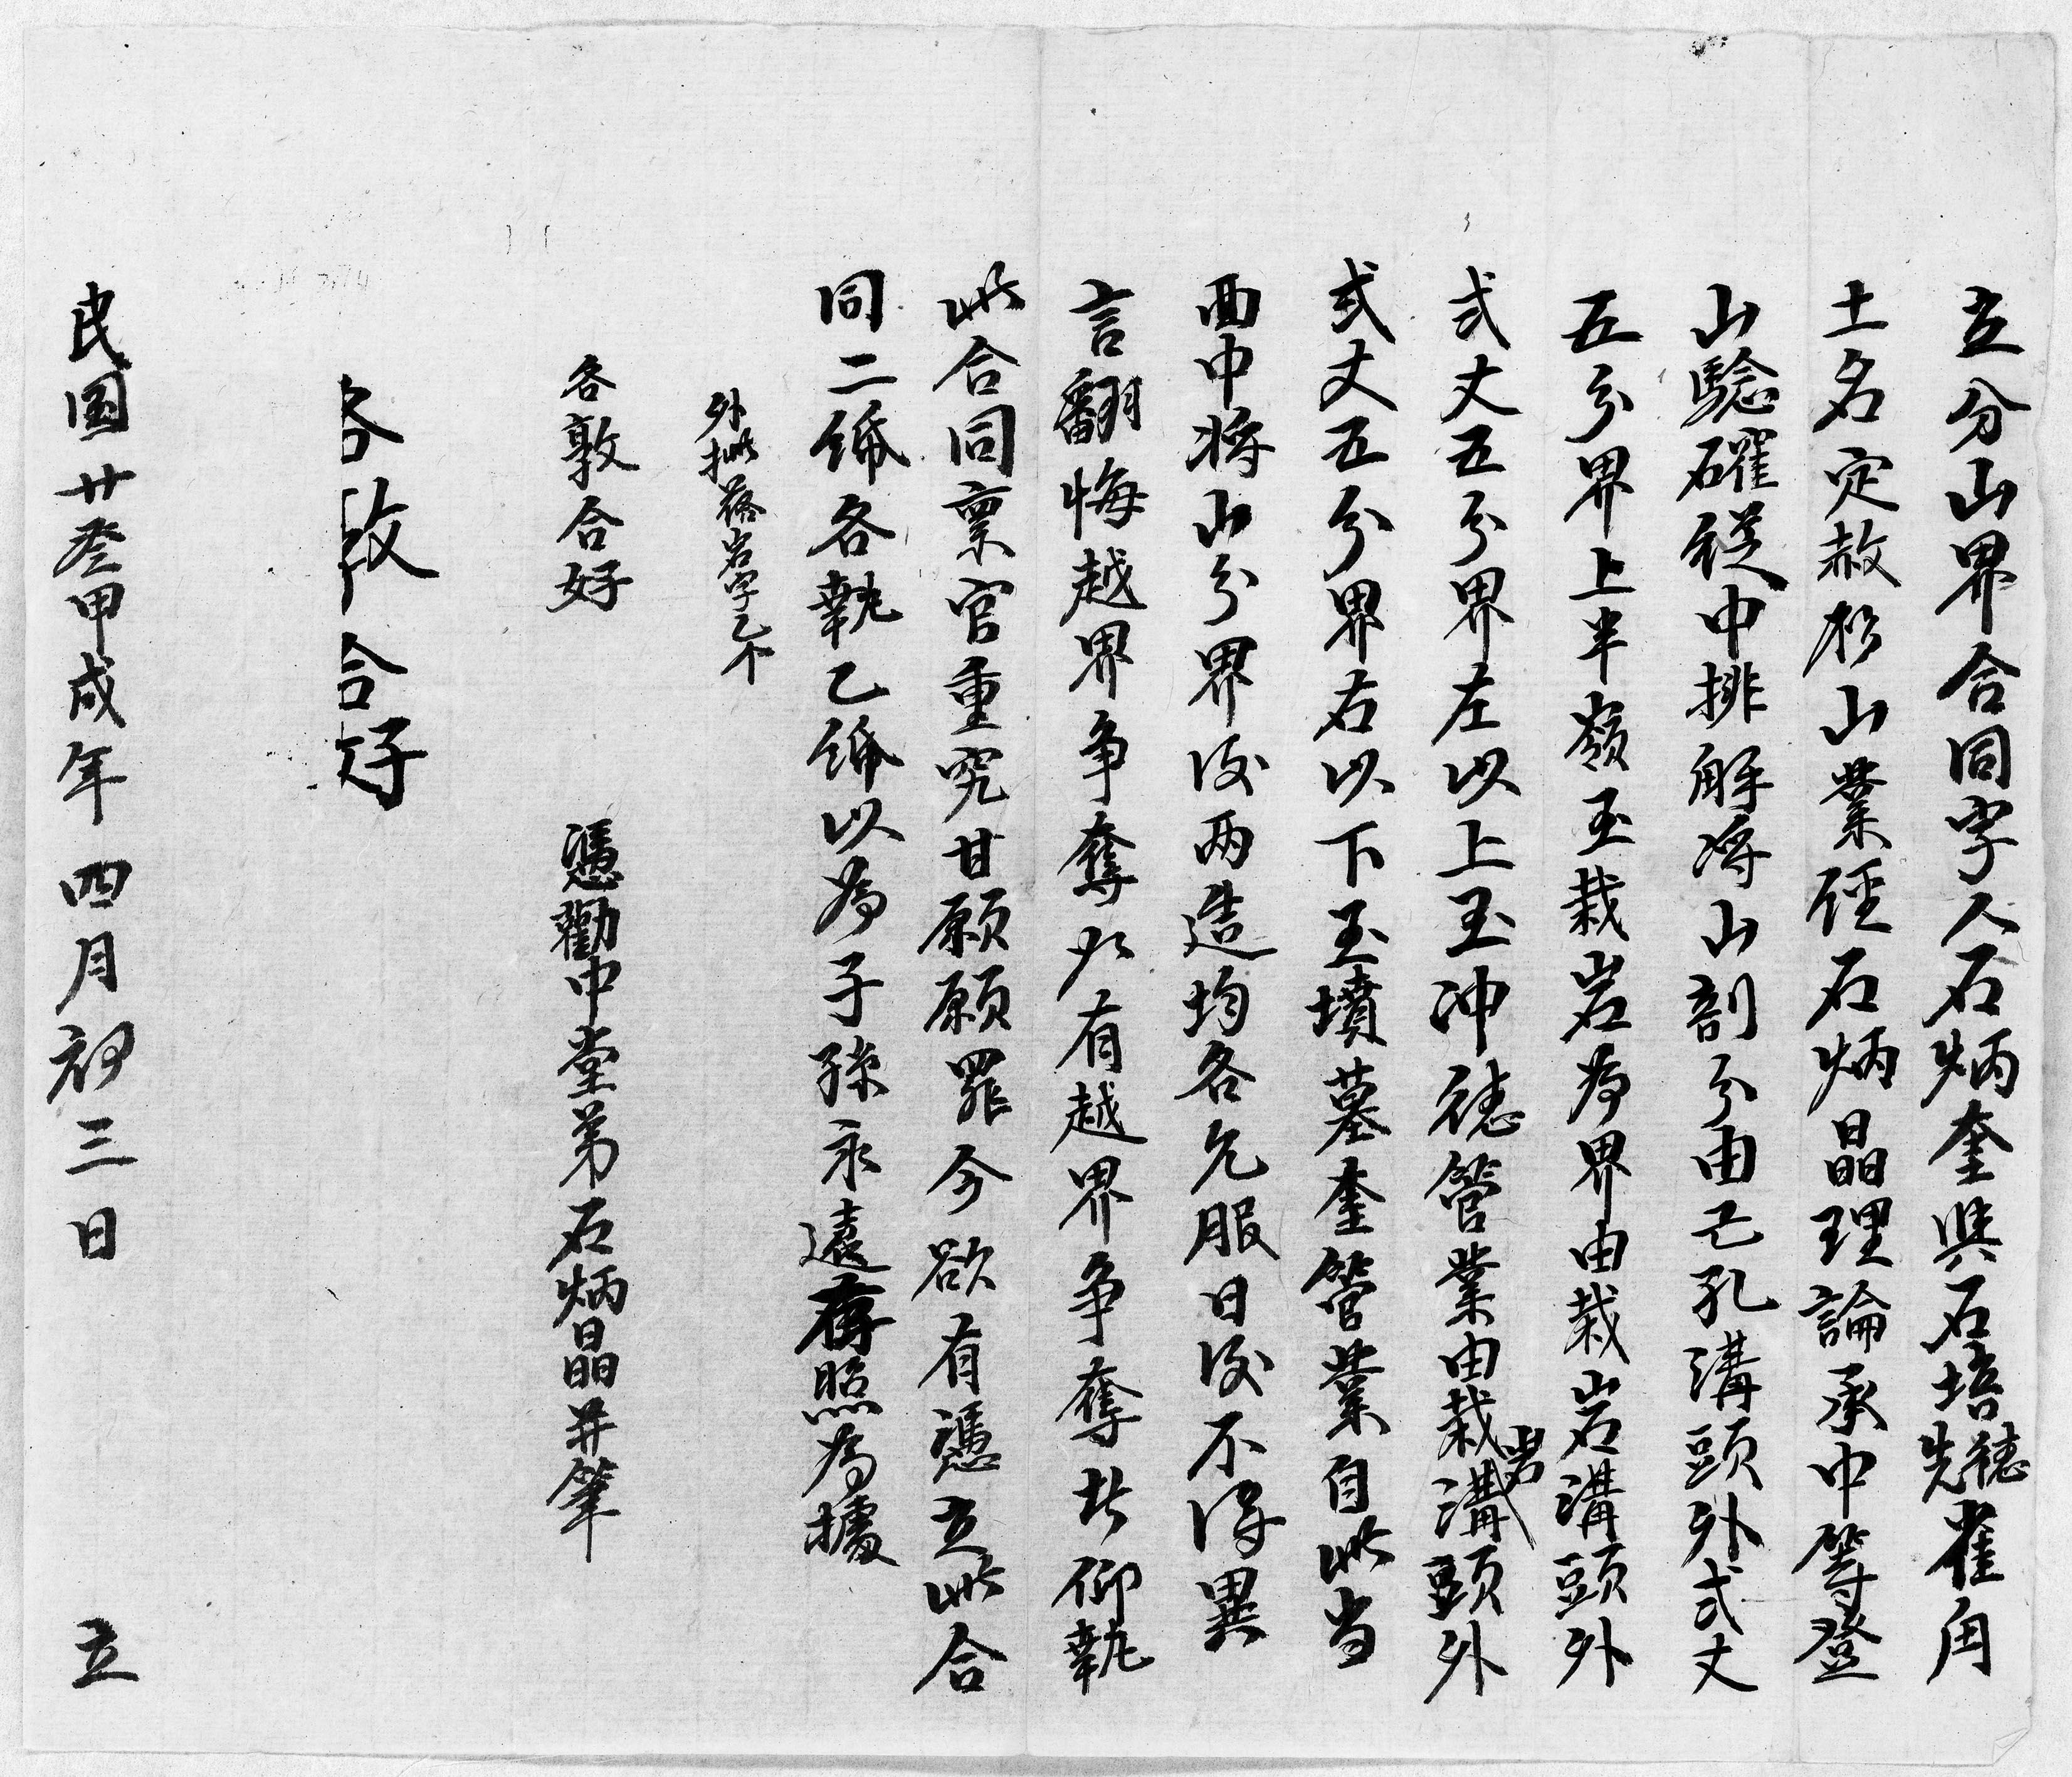 立分山界合同字人石炳奎與石培先德雀角
土名定赦杉山業徑石炳晶理論承中等登
山驗確從中排解将山剖分由乙孔溝頭外弍丈
五分界上半嶺至栽岩為界由栽岩溝頭外
弍丈五分界左以上至冲德管業由栽岩溝頭外
弍丈五分界右以下至墳墓奎管業自此当
面中将山分界後两造均各允服日後不得異
言翻悔越界争奪如有越界争奪者仰執
此合同禀官重究甘願願罪今欲有憑立此合
同二紙各執乙紙以為子孫永遠存照為據
外批落岩字乙个
各敦合好
憑勸中堂弟石炳晶并筆
各敦合好
民国廿叁甲戌年四月初三日 立